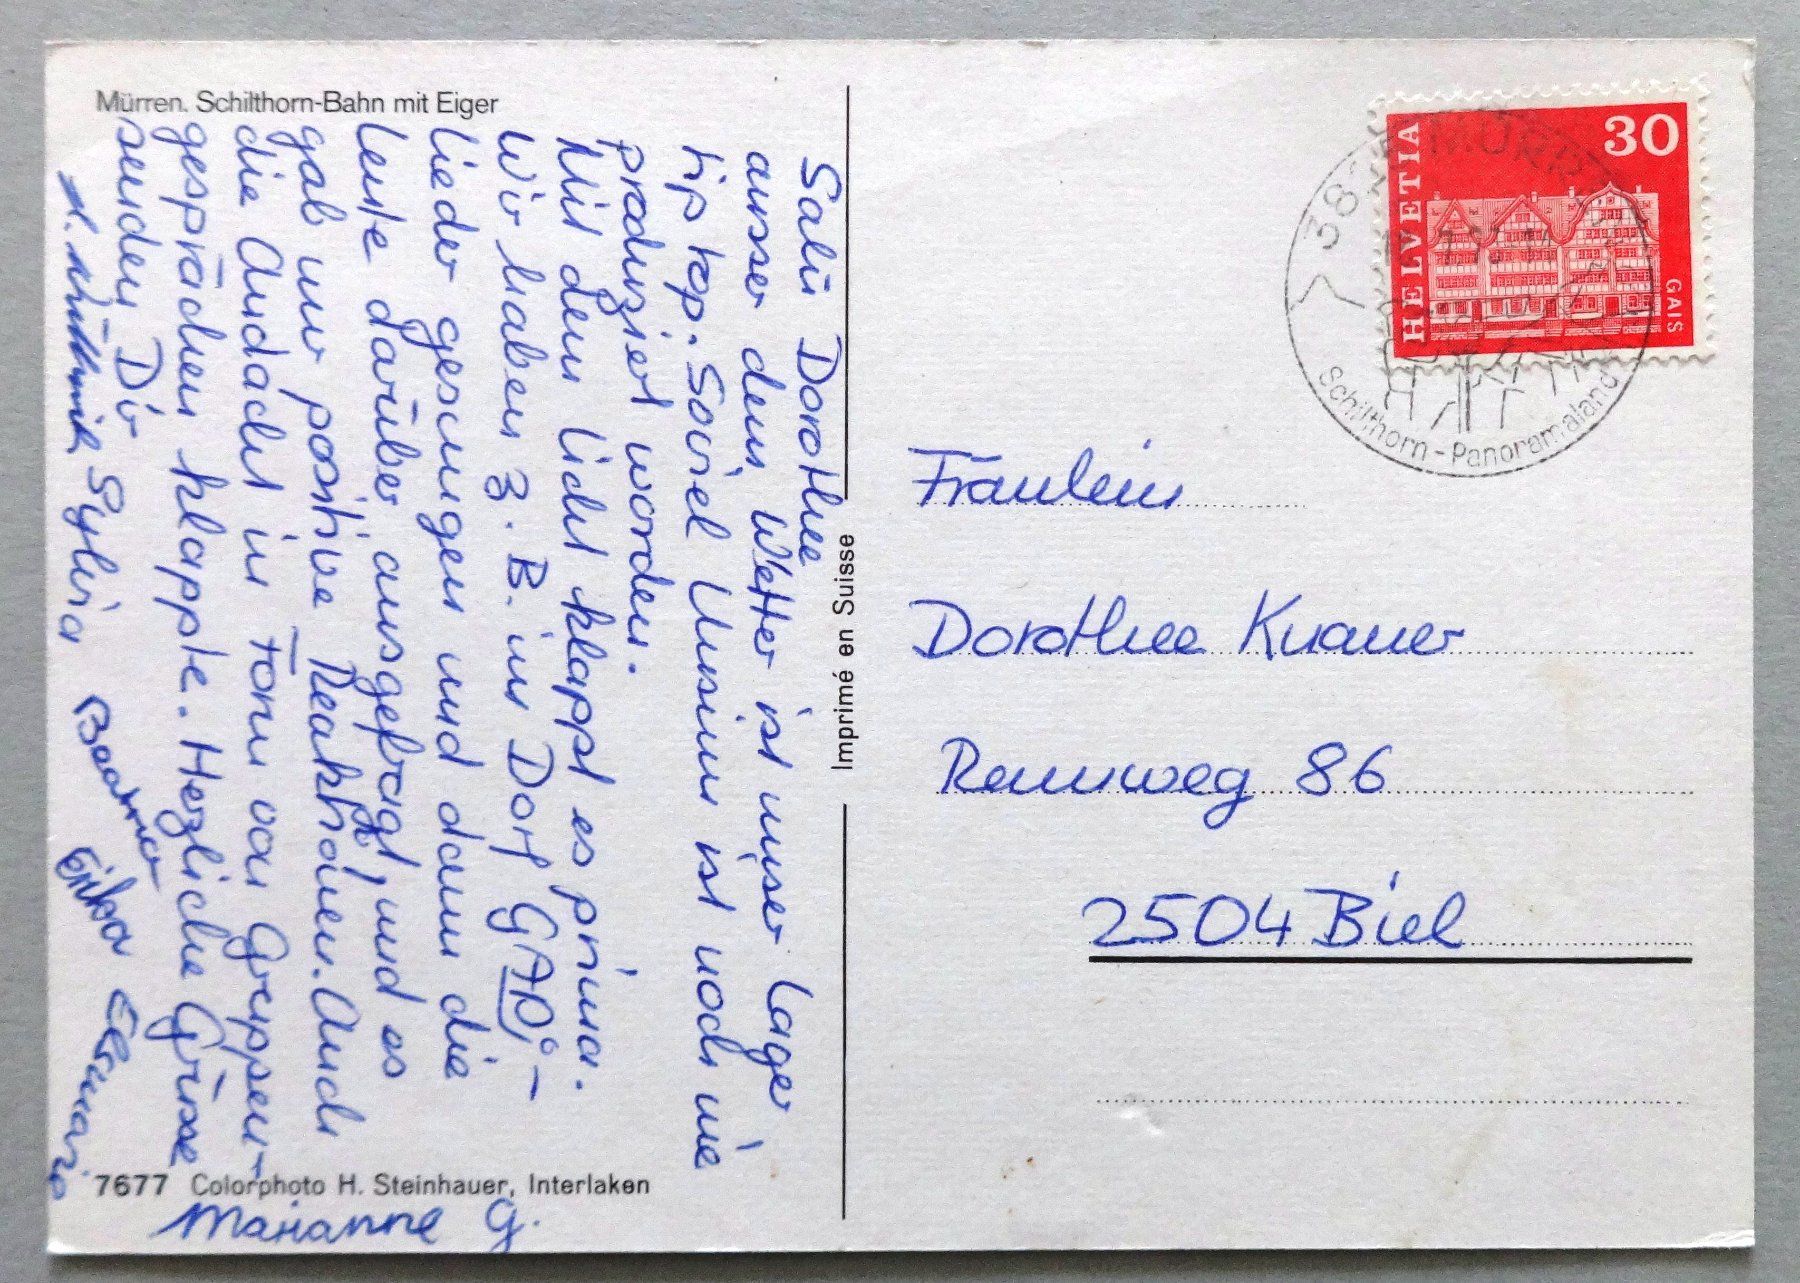 Mürren. Schilthorn-Bahn mit Eiger
Salü Dorothee
ausser dem Wetter ist unser Lager
tip top. Soviel Unsinn ist noch nie
produziert worden.
Mit dem Licht klappt es prima.
Wir haben z. B. im Dorf GADI-
lieder gesungen und dann die
Leute darüber ausgefragt, und es
gab nur positive Reaktionen. Auch
die Andacht in Form von Gruppen-
gesprächen klappte. Herzliche Grüsse
senden Dir
Sylvia Beatrice Erika
Marianne G.
7677 Colorphoto H. Steinhauer, Interlaken
Imprimé en Suisse
HELVETIA
30
GAIS
MÜRREN
Schilthorn-Panoramaland
Fräulein
Dorothee Knauer
Rennweg 86
2504 Biel